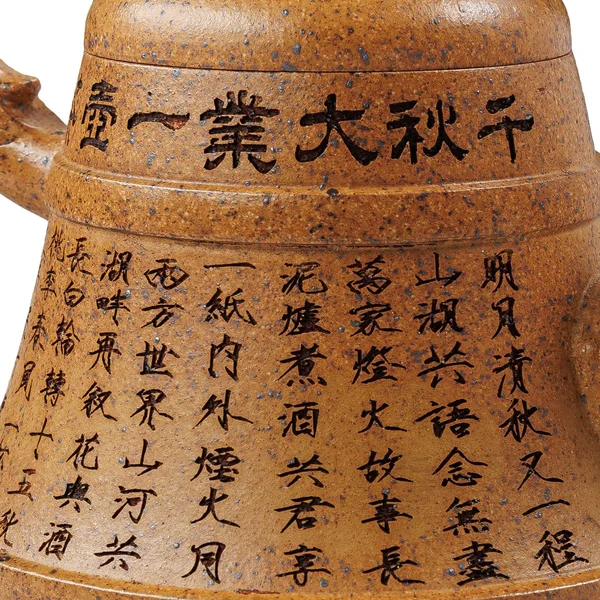 千秋大業一壺
明月清秋又一程
山湖共語念無盡
萬家燈火故事長
泥爐煮酒共君享
一紙内外煙火月
兩方世界山河共
湖畔再叙花與酒
長白輪轉十五秋
桃李春風一